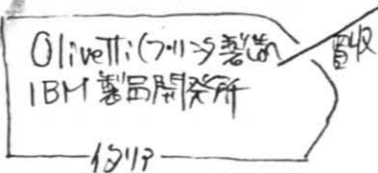 Olivetti(プリンタ)製造
買収
IBM 製品開発所
イタリア